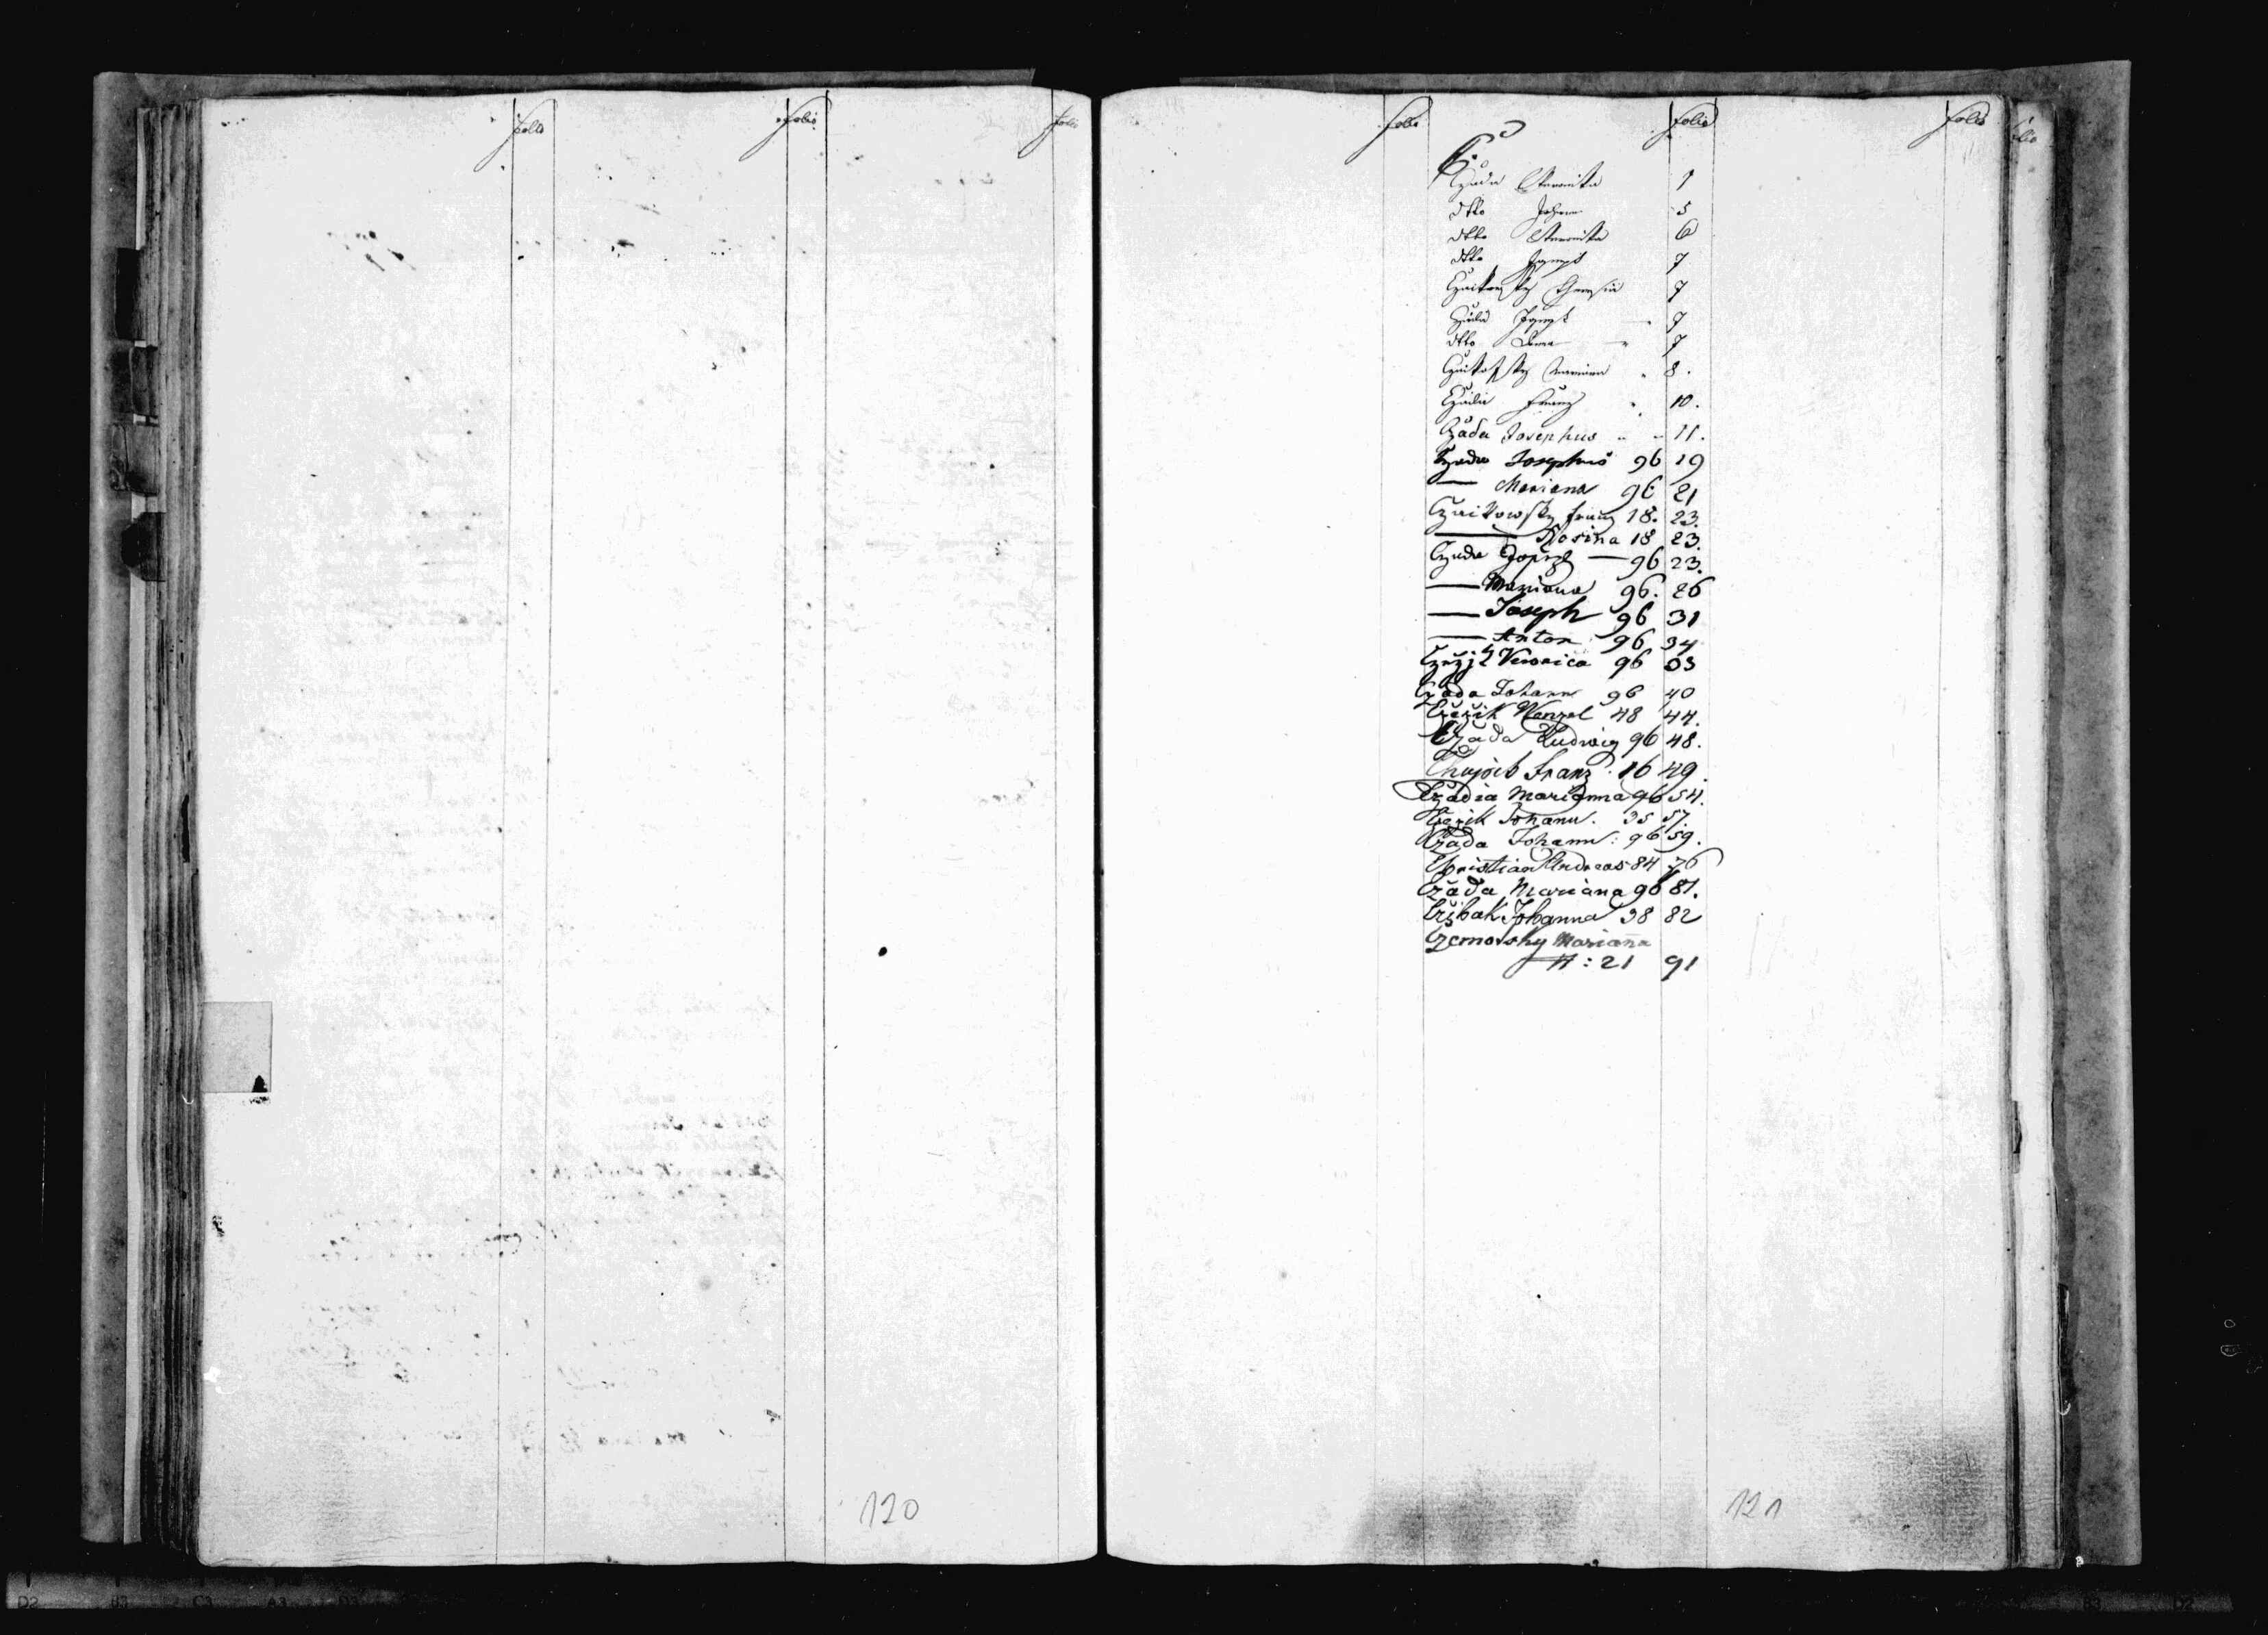 folio folio folio
folio folio folio
C.
Czada Veronika 1
dtto Johann 5
dtto Veronika 6
dtto Joseph 7
Czaikowsky Theresia 7
Joseph 7
dtto Anna 7
Czaikofsky Marianna 8.
Franz 10.
Czada Josephus 11.
Czada Josephus 96 19
— Mariana 96 21
Czaikowsky Franz 18. 23.
— Rosina 18 23.
Czada Joseph — 96 23.
— Mariana 96. 26
— Joseph 96 31
— Anton 96 34
Veronica 96
Czada Johann 96 40
Czežik Wenzel 48 44.
Czada Ludwig 96 48.
Franz 16 49.
Czadia Marianna 96 54.
Johann. 35 57.
Czada Johann: 96 59.
Christian Andreas 84 76
Czada Mariana 96 81.
Johanna 38 82
Czernovsky Marianna
N: 21 91
120
121